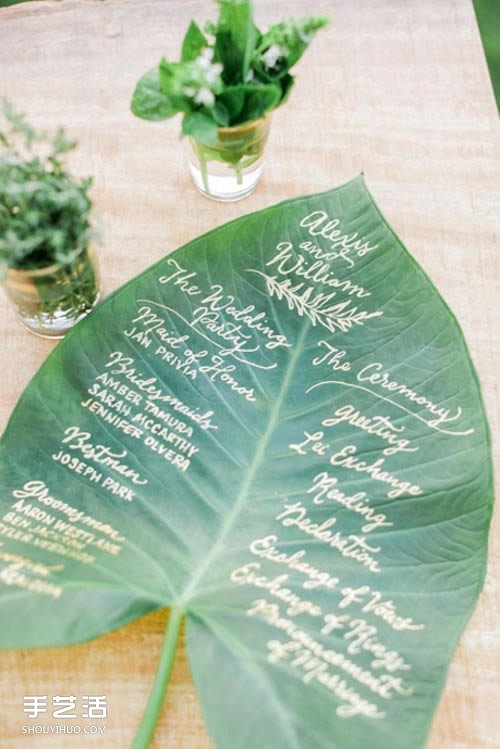 Alexis
and
William
The Wedding
Party
Maid of Honor
JAN PRIVIA
Bridesmaids
AMBER TAMURA
SARAH MCCARTHY
JENNIFER OLVERA
Bestman
JOSEPH PARK
Groomsman
AARON WESTLAKE
BEN
The Ceremony
Greeting
Lei Exchange
Reading
Declaration
Exchange of Vows
Exchange of Rings
Pronouncement
of Marriage
手艺活
SHOUYIHUO.COM